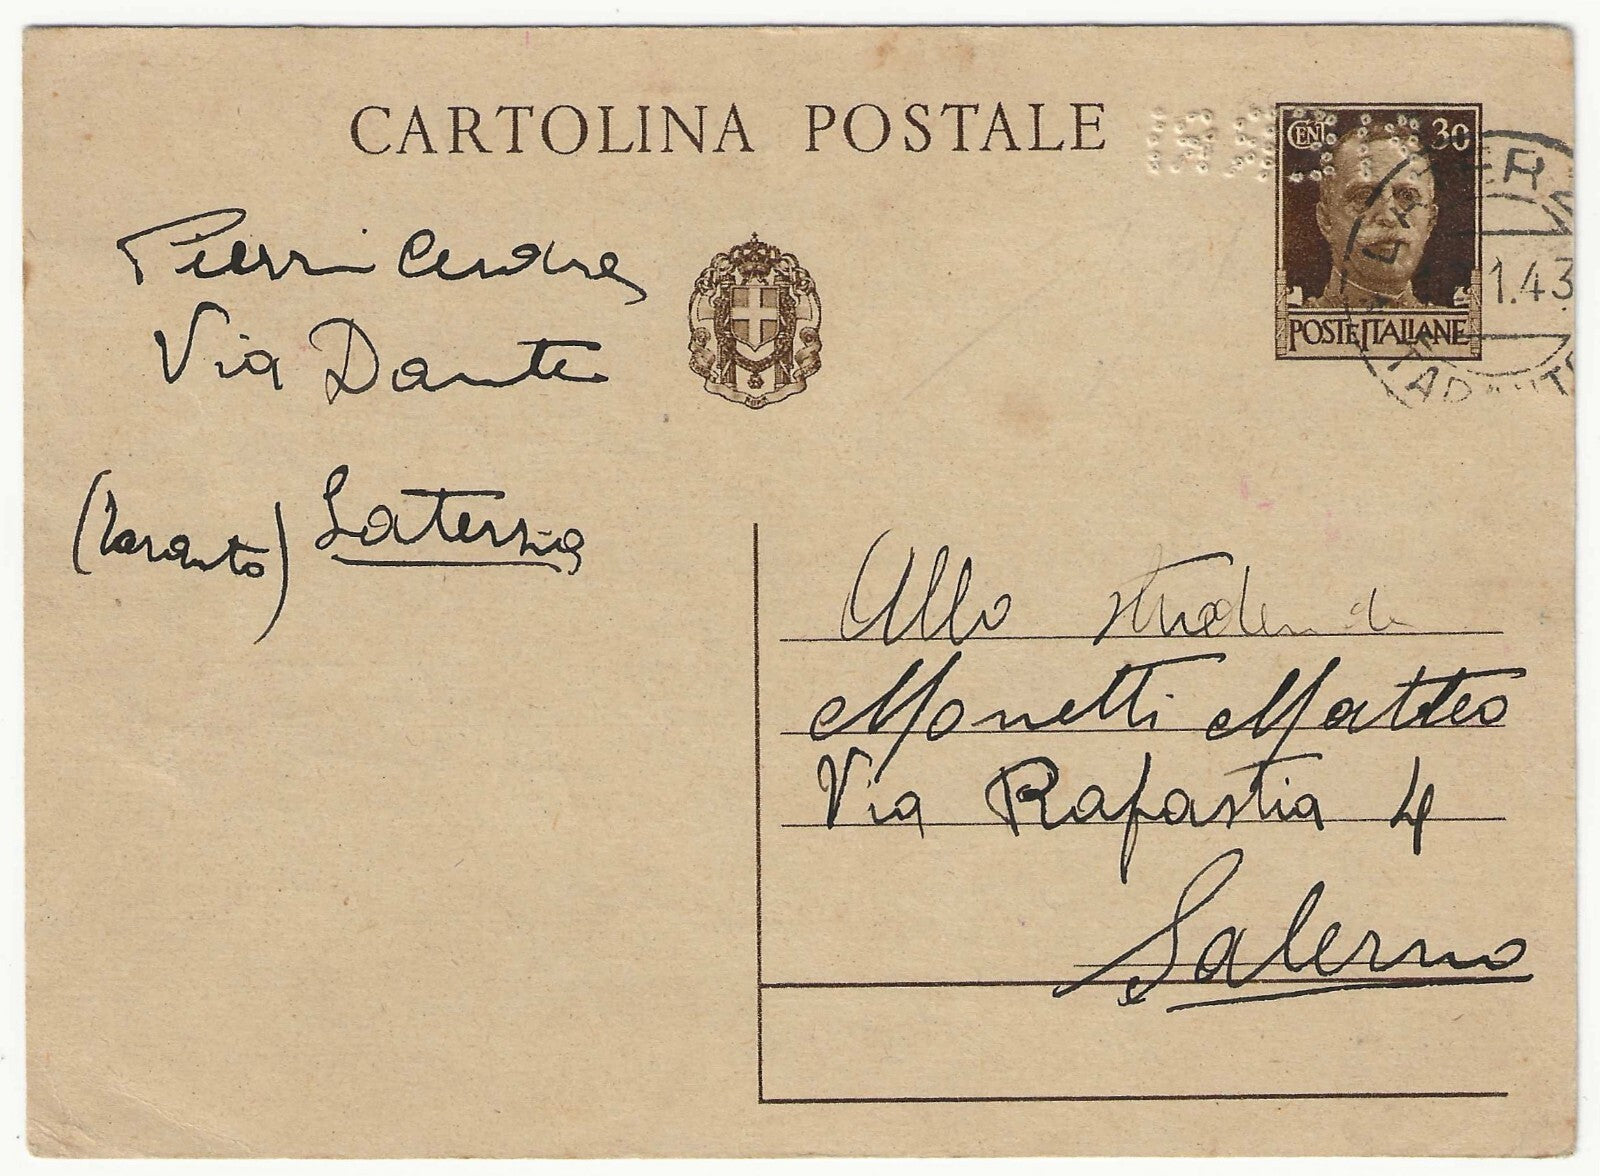 CARTOLINA POSTALE
CENT 30
POSTE ITALIANE
1.43
Pierri
Via Dante
(Taranto) Laterza
Allo
Monetti Matteo
Via Rafastia 4
Salerno